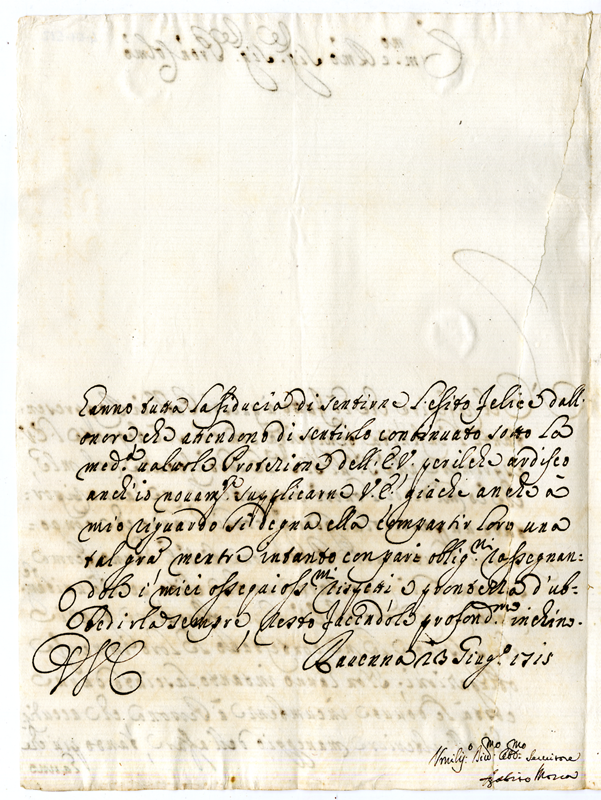 hanno tutta la fiducia di sentirne l'esito felice dall'
onore che attendono di sentirlo continuato sotto la
med.ª ualeuole Protezione dell'E.V. perilche ardisco
anch'io nouam.te supplicarne V.E. giàche anche à
mio riguardo si degna ella compartir loro una
tal gra' mentre intanto con pari oblig.ni rassegnan=
dole i miei ossequioss.mi rispetti e prontezza d'ub=
bedirla sempre, resto facendole profond.mo inchino.
VSE
Rauenna 23 Giug.º 1715
Umiliss.º Diu.mo Obb.mo Seruitore